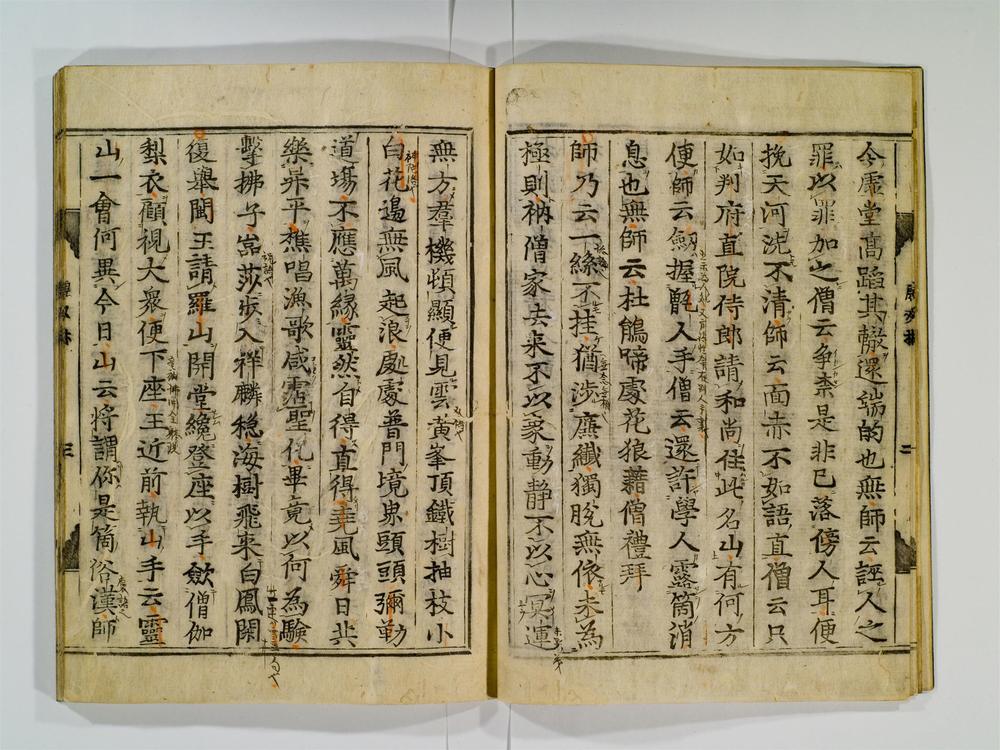 今虚堂高蹈其轍還端的也無師云誣人之
罪以罪加之僧云争柰是非已落傍人耳便
挽天河洗不清師云面赤不如語直僧云只
如判府直院侍郎請和尚住此名山有何方
便師云劒握甑人手僧云還許學人露箇消
息也無師云杜鵑啼處花狼藉僧禮拜
師乃云一絲不挂猶涉廉纖獨脱無依未為
極則衲僧家去来不以象動静不以心冥運
無方羣機頓顯便見雲黄峯頂鐵樹抽枝小
白花邉無風起浪處處普門境界頭頭彌勒
道場不應萬緣靈然自得直得堯風舜日共
樂昇平樵唱漁歌咸霑聖化畢竟以何為驗
擊拂子崈莎歩入祥麟穏海樹飛来白鳳閑
復舉閩王請羅山開堂纔登座以手斂僧伽
梨衣顧視大衆便下座王近前執山手云靈
山一會何異今日山云将謂你是箇俗漢師
二
三